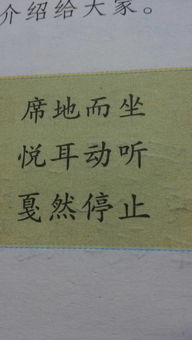 介绍给大家。
席地而坐
悦耳动听
戛然停止